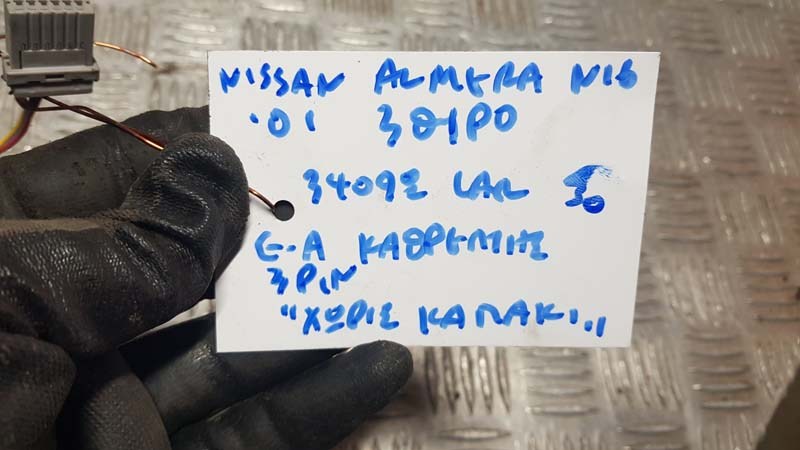 NISSAN ALMERA N16
'01 3ΘΙΡΟ
3409Σ
Ε-Α ΚΑΘΡΕΠΤΗΣ
3 PIN
"ΧΩΡΙΣ ΚΑΠΑΚΙ,,